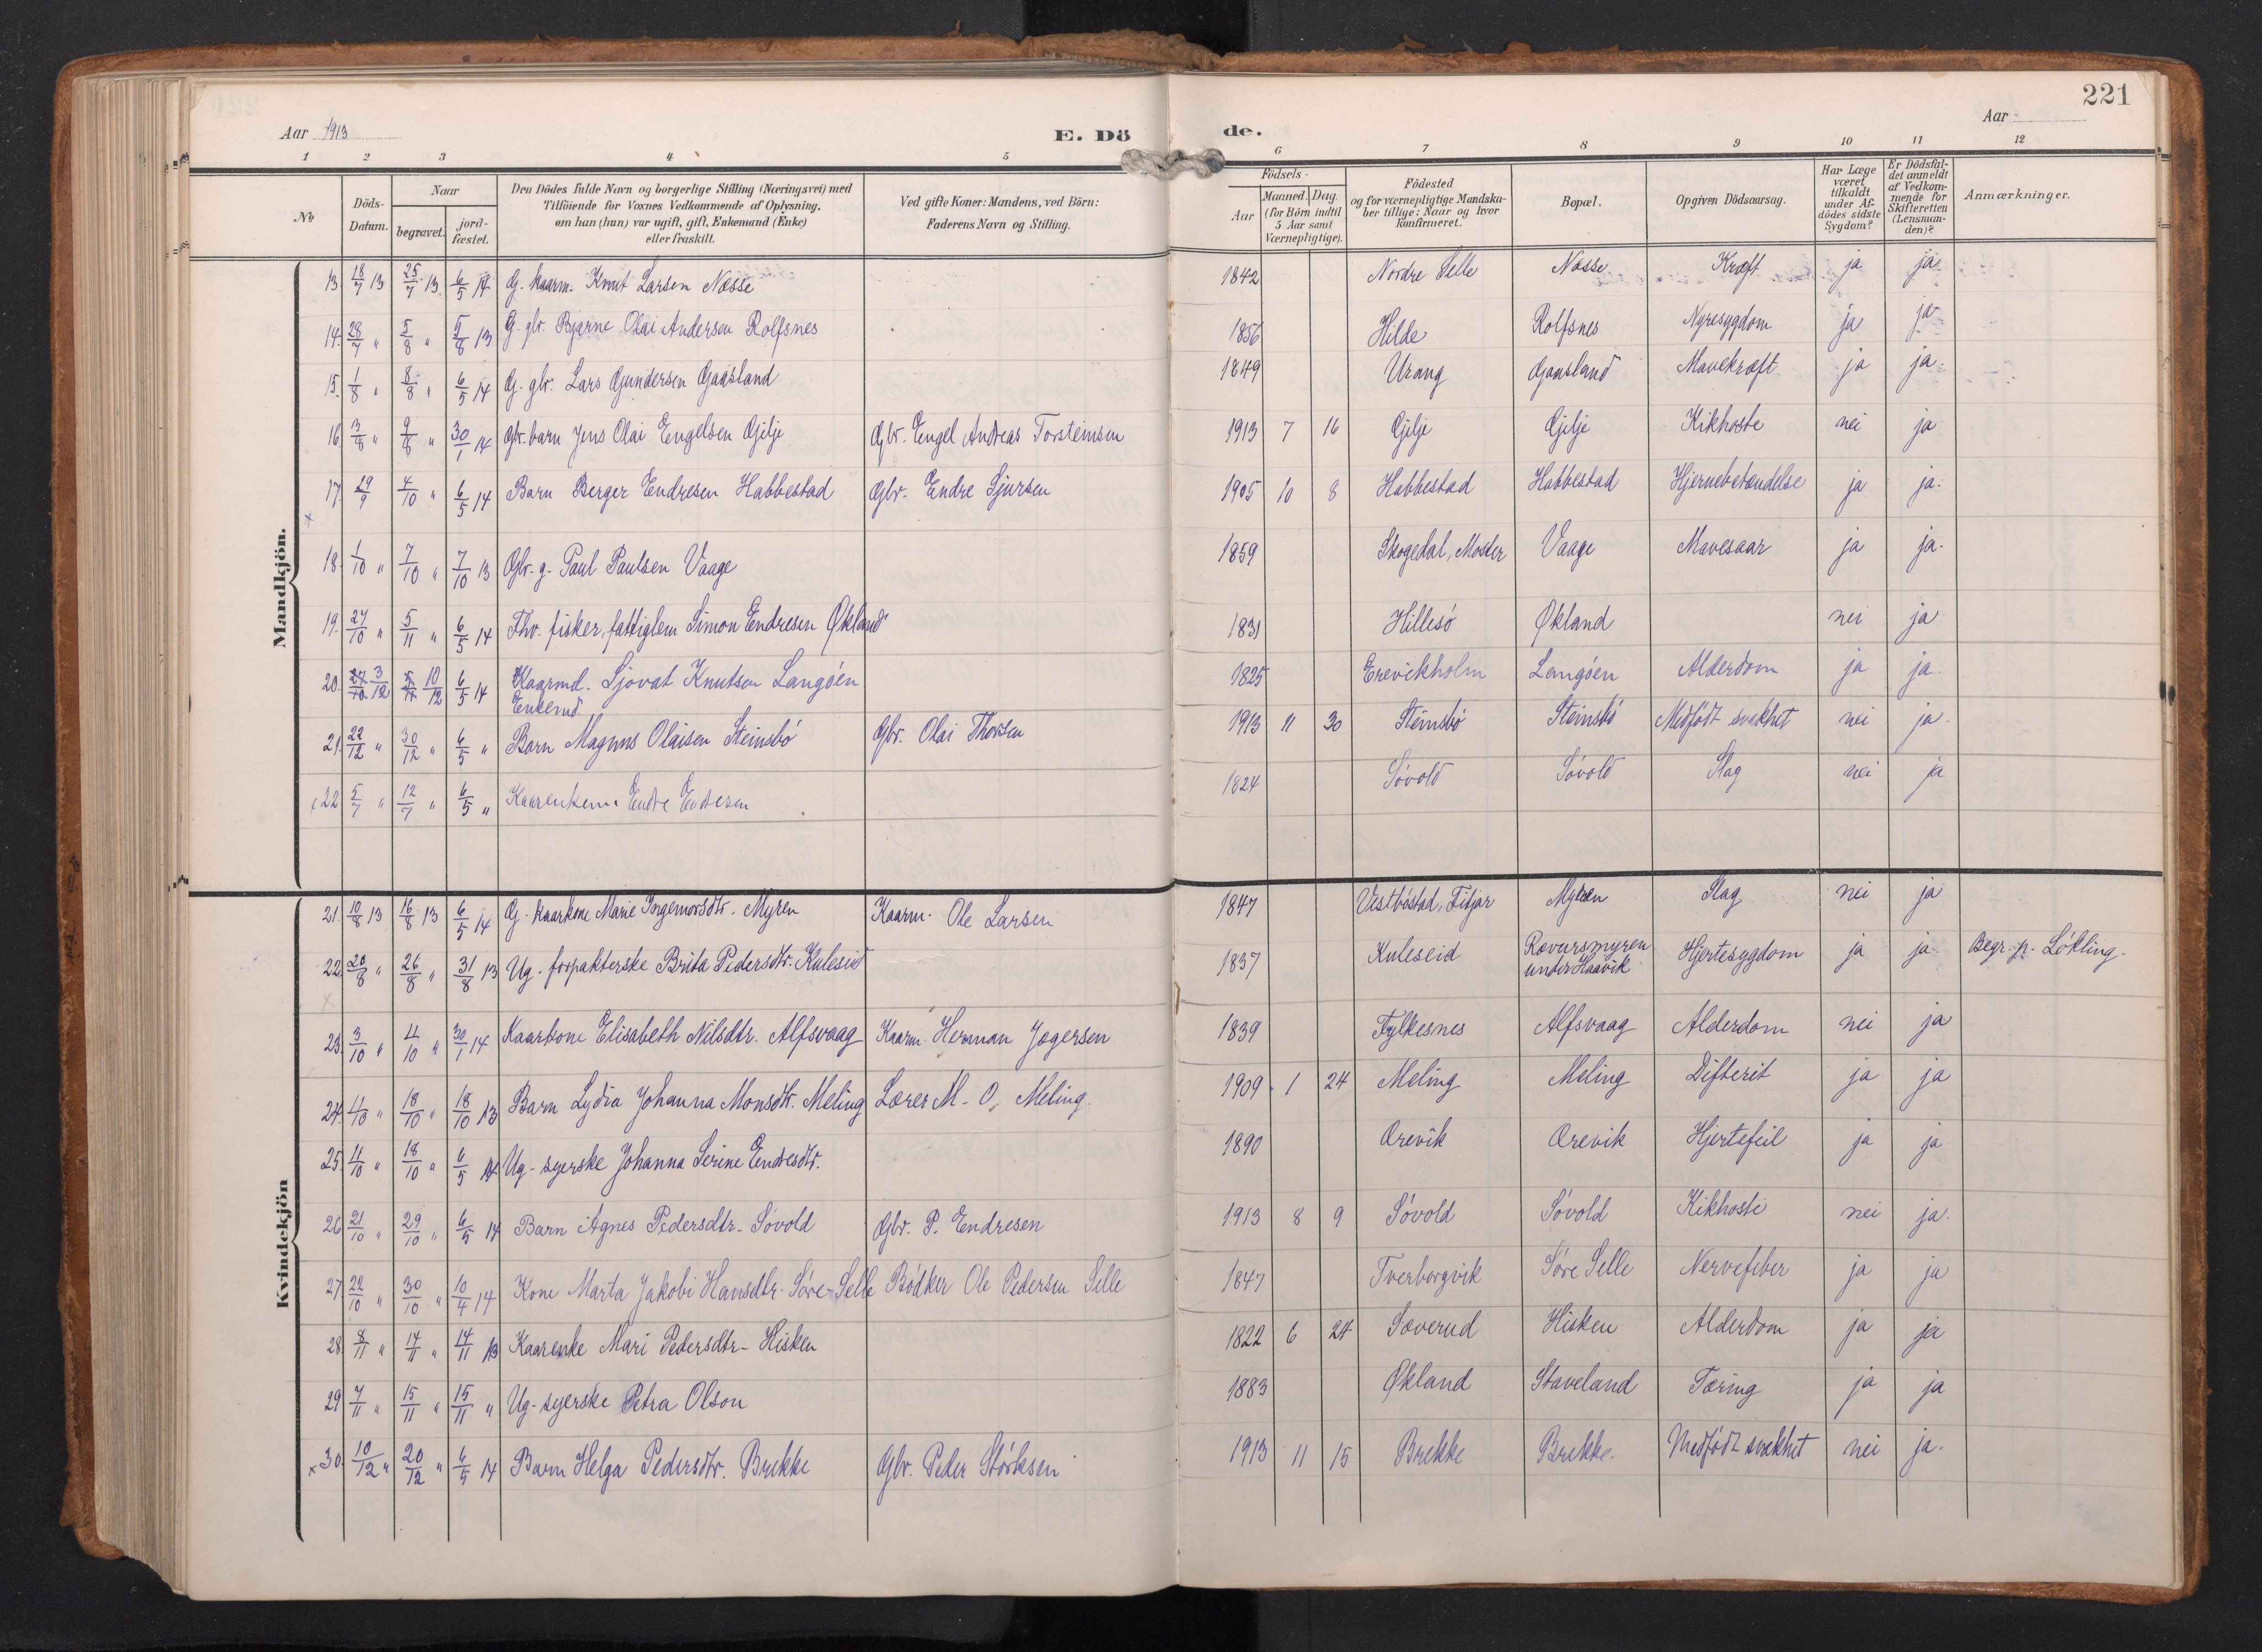 221
Aar 1913
E. Dö
de.
Aar
1 2 3 4 5 6 7 8 9 10 11 12
№
Döds-Datum.
Naar begravet. jord-fæstet.
Den Dödes fulde Navn og borgerlige Stilling (Næringsvei) med
Tilföiende for Voxnes Vedkommende af Oplysning,
om han (hun) var ugift, gift, Enkemand (Enke)
eller fraskilt.
Ved gifte Koner: Mandens, ved Börn:
Faderens Navn og Stilling.
Födsels-
Aar Maaned. Dag.
(for Börn indtil
5 Aar samt
Værnepligtige).
Födested
og for værnepligtige Mandska-
ber tillige: Naar og hvor
konfirmeret.
Bopæl.
Opgiven Dödsaarsag.
Har Læge
været
tilkaldt
under Af-
dödes sidste
Sygdom?
Er Dödsfal-
det anmeldt
af Vedkom-
mende for
Skifteretten
(Lensman-
den)?
Anmærkninger.
Mandkjön.
13. 18/7 13 25/7 13 6/5 14 G. kaarm. Knut Larsen Næsse 1842 Nordre Selle Næsse Kræft ja ja
14. 28/7 " 5/8 " 5/8 13 G. gbr. Bjarne Olai Andersen Rolfsnes 1856 Hilde Rolfsnes Nyresygdom ja ja
15. 1/8 " 8/8 " 6/5 14 G. gbr. Lars Gundersen Gaasland 1849 Urang Gaasland Mavekræft ja ja
16. 3/8 " 9/8 " 30/1 14 Gbr. barn Jens Olai Engelsen Gjilje Gbr. Engel Andreas Torsteinsen 1913 7 16 Gjilje Gjilje Kikhoste nei ja
17. 29/9 4/10 " 6/5 14 Barn Berger Endresen Habbestad Gbr. Endre Sjursen 1905 10 8 Habbestad Habbestad Hjernebetændelse ja ja.
x
18. 1/10 " 7/10 " 7/10 13 Gbr. g. Paul Paulsen Vaage 1859 Skogedal, Moster Vaage Mavesaar ja ja.
19. 27/10 " 5/11 " 6/5 14 Fhv. fisker, fattiglem Simon Endresen Økland 1831 Hillesö Økland nei ja
20. 3/12 10/12 6/5 14 Kaarmd. Sjovat Knutsen Langöen 1825 Erevikholm Langöen Alderdom ja ja.
Enkemd.
21. 22/12 " 30/12 " 6/5 " Barn Magnus Olaisen Steinsbö Gbr. Olai Thorsen 1913 11 30 Steinsbö Steinsbö Medfödt svakhet nei ja.
x 22 5/7 " 12/7 " 6/5 " Kaarenkem. Endre Endresen 1824 Sövold Sövold Slag nei ja
Kvindekjön
21. 10/8 13 16/8 13 6/5 14 G. kaarkone Marie Ingemorsdtr. Myren Kaarm. Ole Larsen 1847 Vestböstad, Fitjar Myren Slag nei ja
22. 20/8 " 26/8 " 31/8 13 Ug. forpakterske Brita Pedersdtr. Kuleseid 1837 Kuleseid Rævursmyren under Haavik Hjertesygdom ja ja Begr. p. Lökling.
23. 3/10 " 11/10 " 30/1 14 Kaarkone Elisabeth Nilsdtr. Alfsvaag Kaarm. Herman Jøgersen 1839 Fylkesnes Alfsvaag Alderdom nei ja
24. 11/10 " 18/10 " 18/10 13 Barn Lydia Johanna Monsdtr. Meling Lærer M. O. Meling. 1909 1 24 Meling Meling Difterit ja ja
25. 11/10 " 18/10 " 6/5 14 Ug. syerske Johanna Serine Endresdtr. 1890 Ørevik Ørevik Hjertefeil ja ja
26. 21/10 " 29/10 " 6/5 14 Barn Agnes Pedersdtr. Sövold Gbr. P. Endresen 1913 8 9 Sövold Sövold Kikhoste nei ja.
27. 22/10 " 30/10 " 10/4 14 Kone Marta Jakobi Hansdtr. Söre-Selle Bödker Ole Pedersen Selle 1847 Tverborgvik Söre Selle Nervefeber ja ja
28. 8/11 " 14/11 " 14/11 13 Kaarenke Mari Pedersdtr. Hisken 1822 6 24 Sæverud Hisken Alderdom ja ja
29 7/11 " 15/11 " 15/11 " Ug. syerske Petra Olson 1883 Økland Staveland Tæring ja ja
x 30. 10/12 " 20/12 " 6/5 14 Barn Helga Pedersdtr. Brekke Gbr. Peder Störksen 1913 11 15 Brekke Brekke. Medfödt svakhet nei ja.